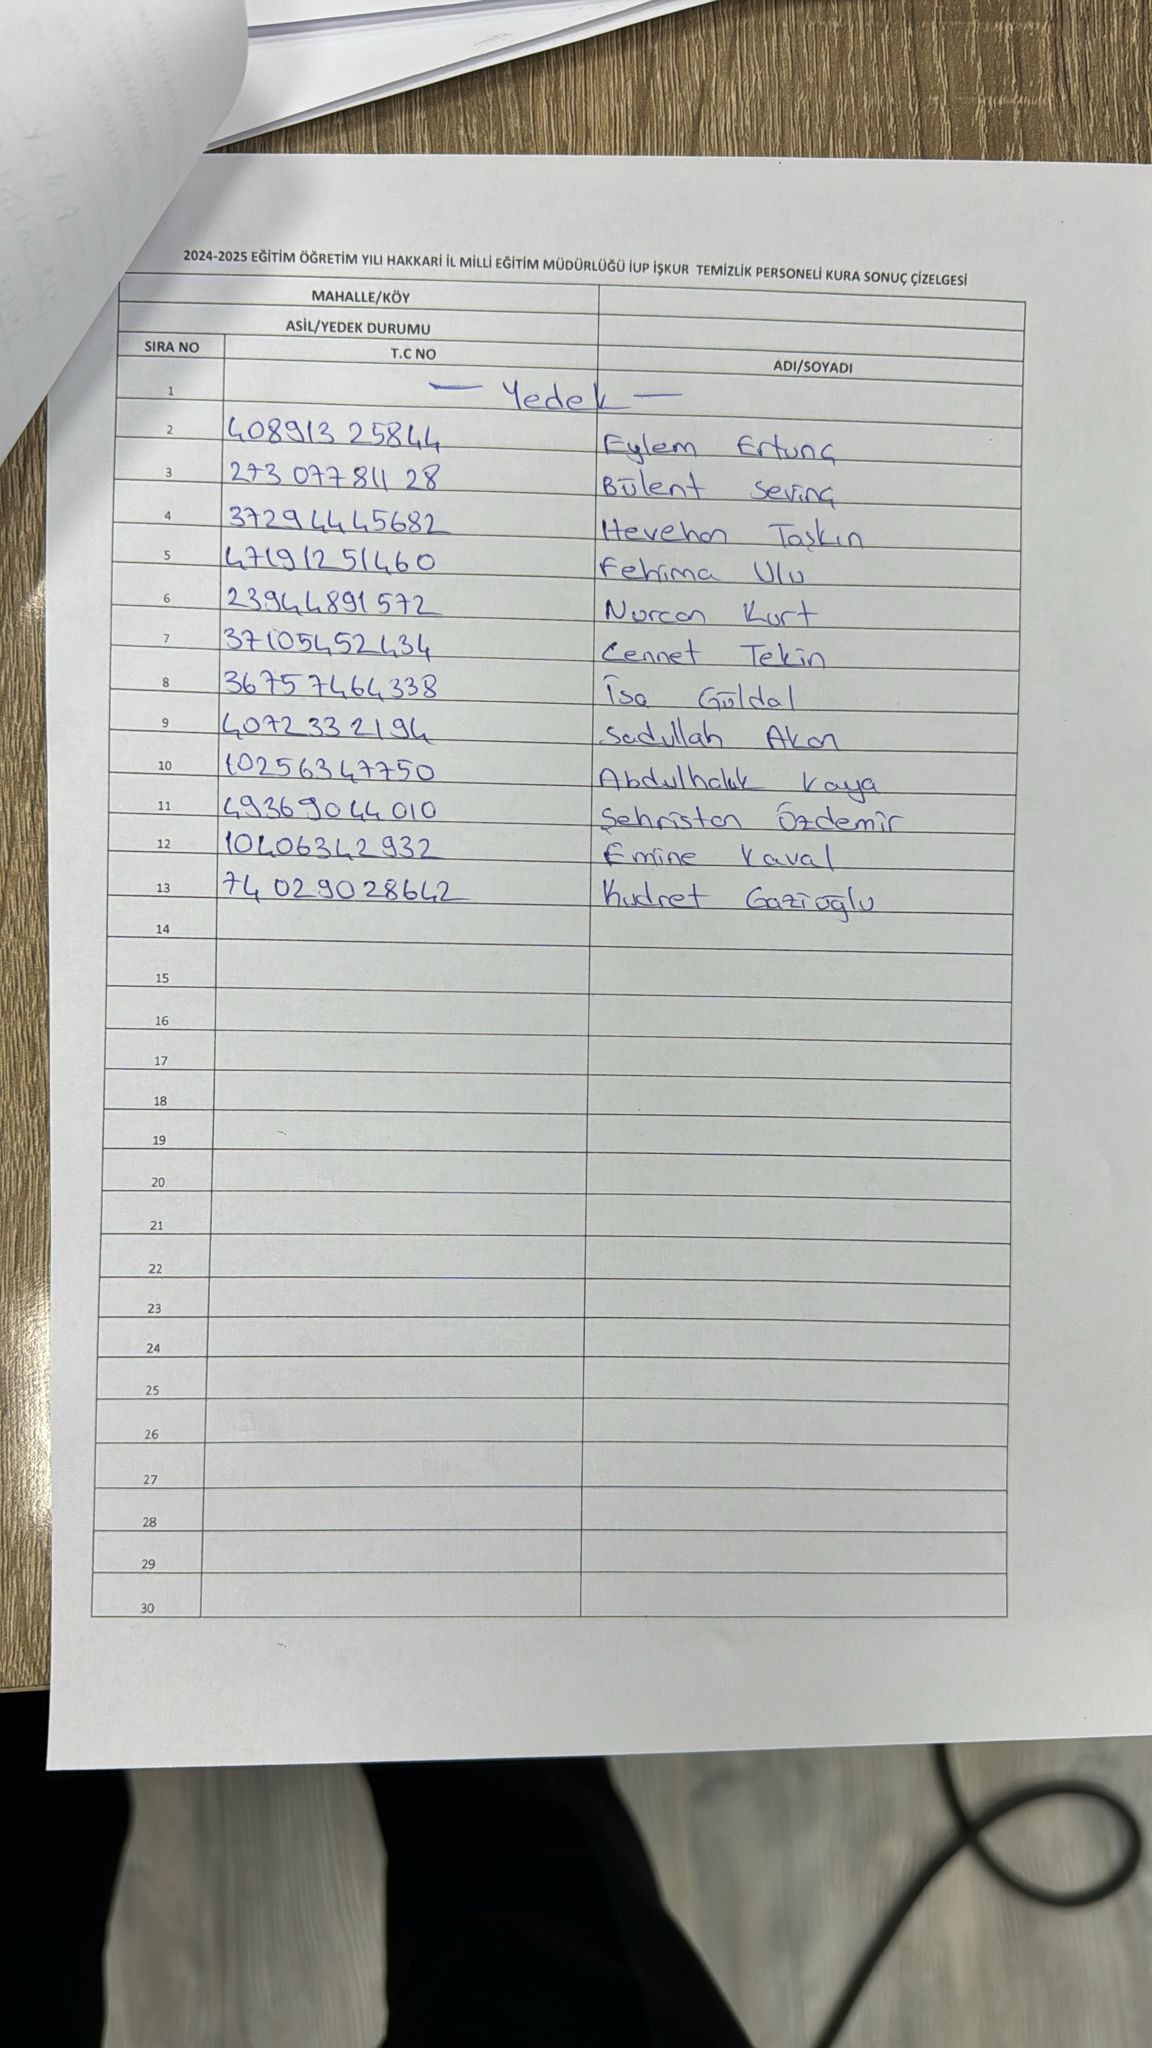 2024-2025 EĞİTİM ÖĞRETİM YILI HAKKARİ İL MİLLİ EĞİTİM MÜDÜRLÜĞÜ İUP İŞKUR TEMİZLİK PERSONELİ KURA SONUÇ ÇİZELGESİ
MAHALLE/KÖY
ASİL/YEDEK DURUMU
SIRA NO T.C NO ADI/SOYADI
1 — Yedek —
2 408913 25844 Eylem Ertunç
3 273 077811 28 Bülent Sevinç
4 37294445682 Hevehan Taşkın
5 47191251460 Fehima Ulu
6 23944891572 Nurcan Kurt
7 37105452434 Cennet Tekin
8 36757464338 İsa Güldal
9 4072332194 Sadullah Akan
10 10256347750 Abdulhalık Kaya
11 49369044010 Şehristan Özdemir
12 10406342932 Emine Kaval
13 74029028642 Kudret Gazioğlu
14
15
16
17
18
19
20
21
22
23
24
25
26
27
28
29
30